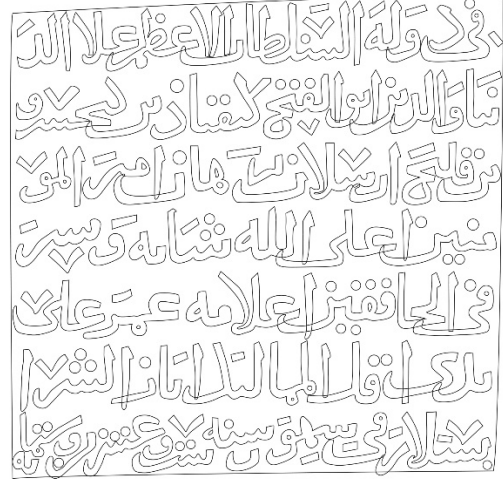 في دولة السلطان الاعظم علا الد
نيا والدين ابو الفتح كيقباذ بن كيخسرو
بن قلج ارسلان برهان امير المو
منين اعلى الله شانه و سير
في الخافقين اعلامه عمر على
يدي اقل اياز الشرا
بسلار في سنه ست وعشرين وستمايه